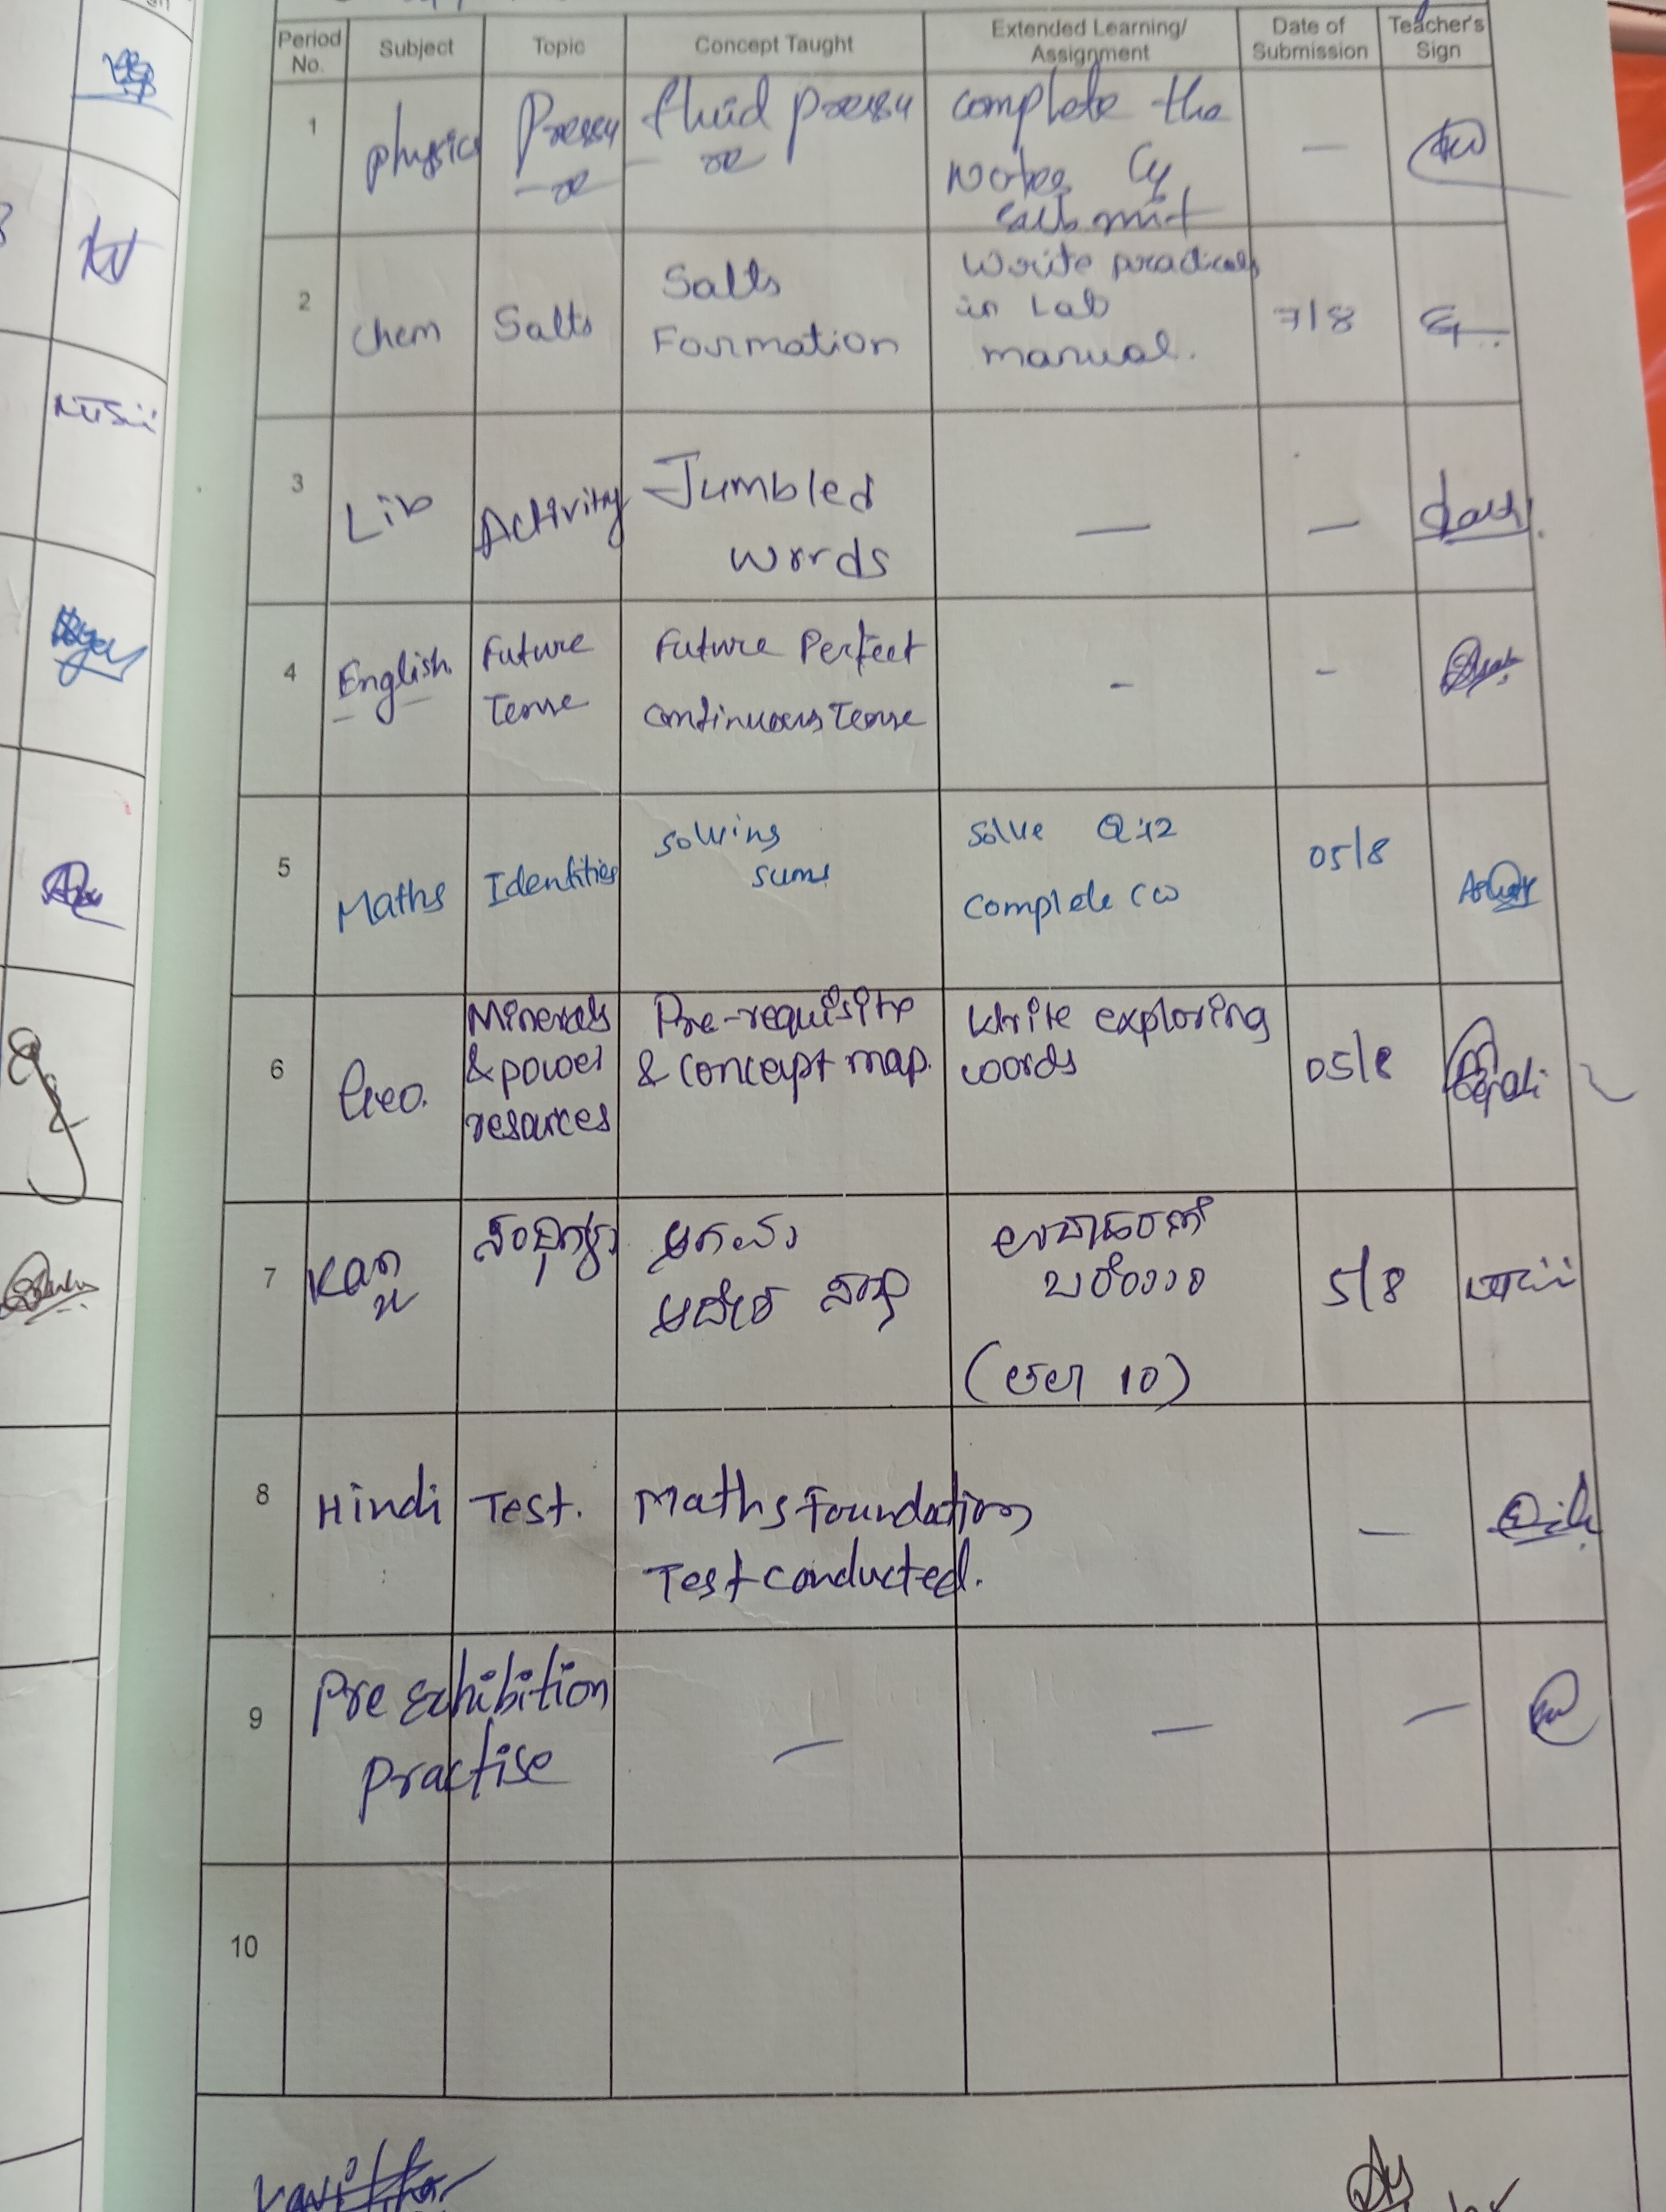 Period No. Subject Topic Concept Taught Extended Learning/ Assignment Date of Submission Teacher's Sign
1 physics Pressu-re fluid pressu-re complete the notes & submit —
2 Chem Salts Salts Formation Write practicals in Lab manual. 7/8
3 Lib Activity Jumbled words — —
4 English Future Tense Future Perfect continuous Tense - -
5 Maths Identities solving sums Solve Q:12 Complete CW 05/8
6 Geo. Minerals & power resources Pre-requisite & concept map. Write exploring words 05/8
7 Kan ಆಗಮ ಆದೇಶ ಸಂಧಿ ಉದಾಹರಣೆ ಬರೆಯಿರಿ 10) 5/8
8 Hindi Test. Maths Foundation Test conducted. —
9 Pre Exhibition Practise — — —
10